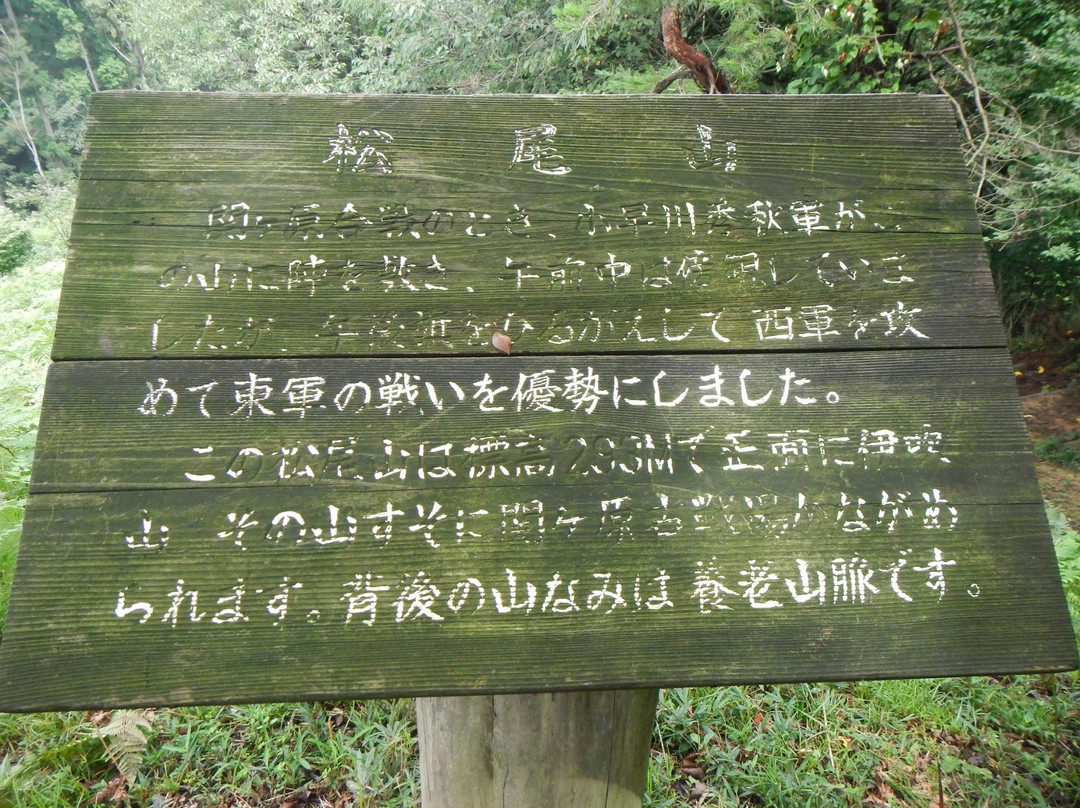 松尾山
関ヶ原合戦のとき、小早川秀秋軍がこ
の山に陣を敷き、午前中は傍観していま
したが、午後旗をひるがえして西軍を攻
めて東軍の戦いを優勢にしました。
この松尾山は標高293Mで正面に伊吹
山 その山すそに関ヶ原古戦場がながめ
られます。背後の山なみは養老山脈です。